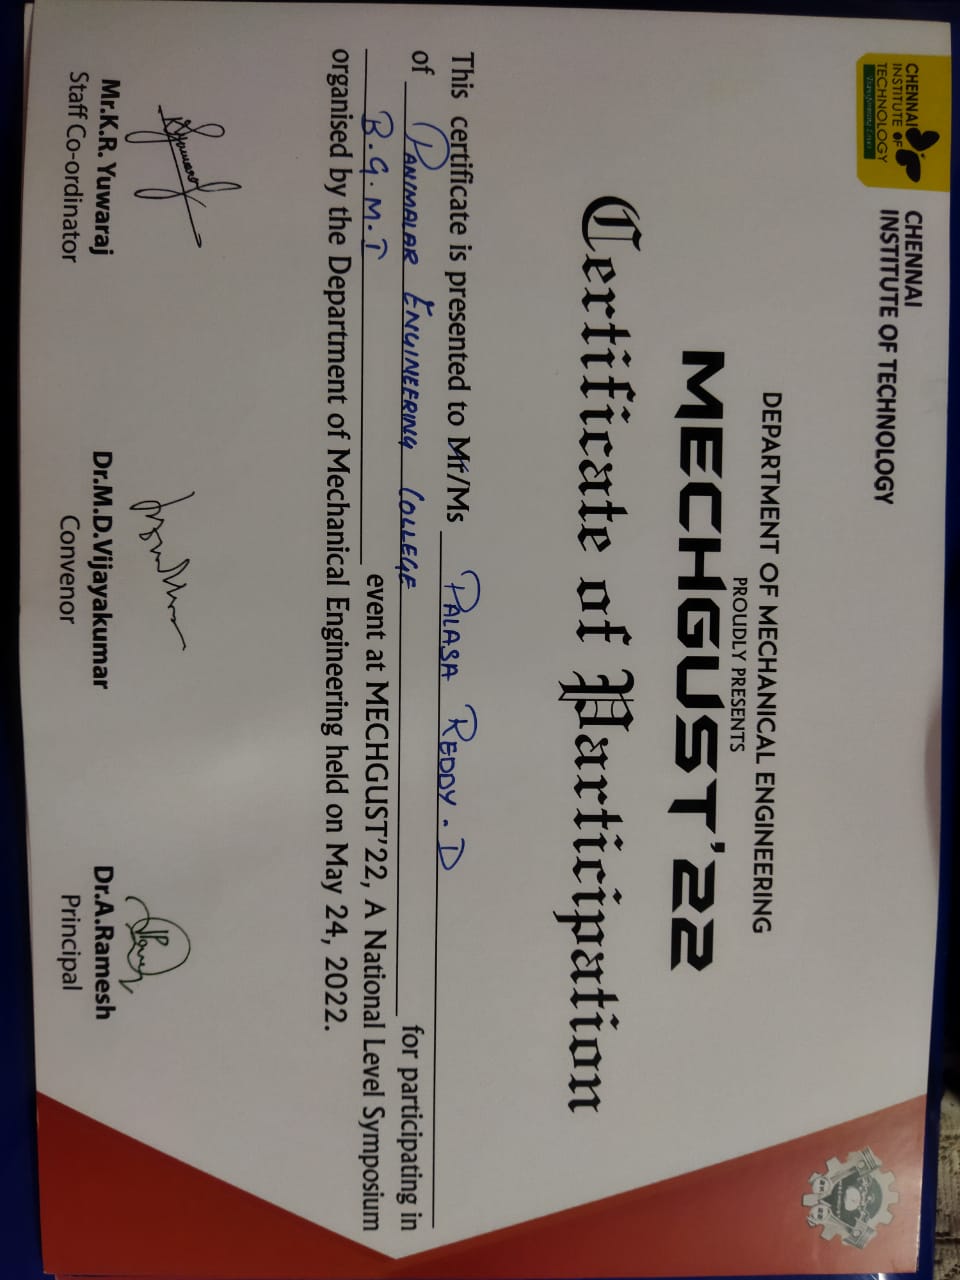 CHENNAI
INSTITUTE OF
TECHNOLOGY
Transforming Lives
CHENNAI
INSTITUTE OF TECHNOLOGY
MECHGUST
2K 22
DEPARTMENT OF MECHANICAL ENGINEERING
PROUDLY PRESENTS
MECHGUST'22
Certificate of Participation
This certificate is presented to Mr/Ms PALASA REDDY. D
of PANIMALAR ENGINEERING COLLEGE for participating in
B.G.M.I event at MECHGUST'22, A National Level Symposium
organised by the Department of Mechanical Engineering held on May 24, 2022.
Mr.K.R. Yuwaraj
Staff Co-ordinator
Dr.M.D.Vijayakumar
Convenor
Dr.A.Ramesh
Principal